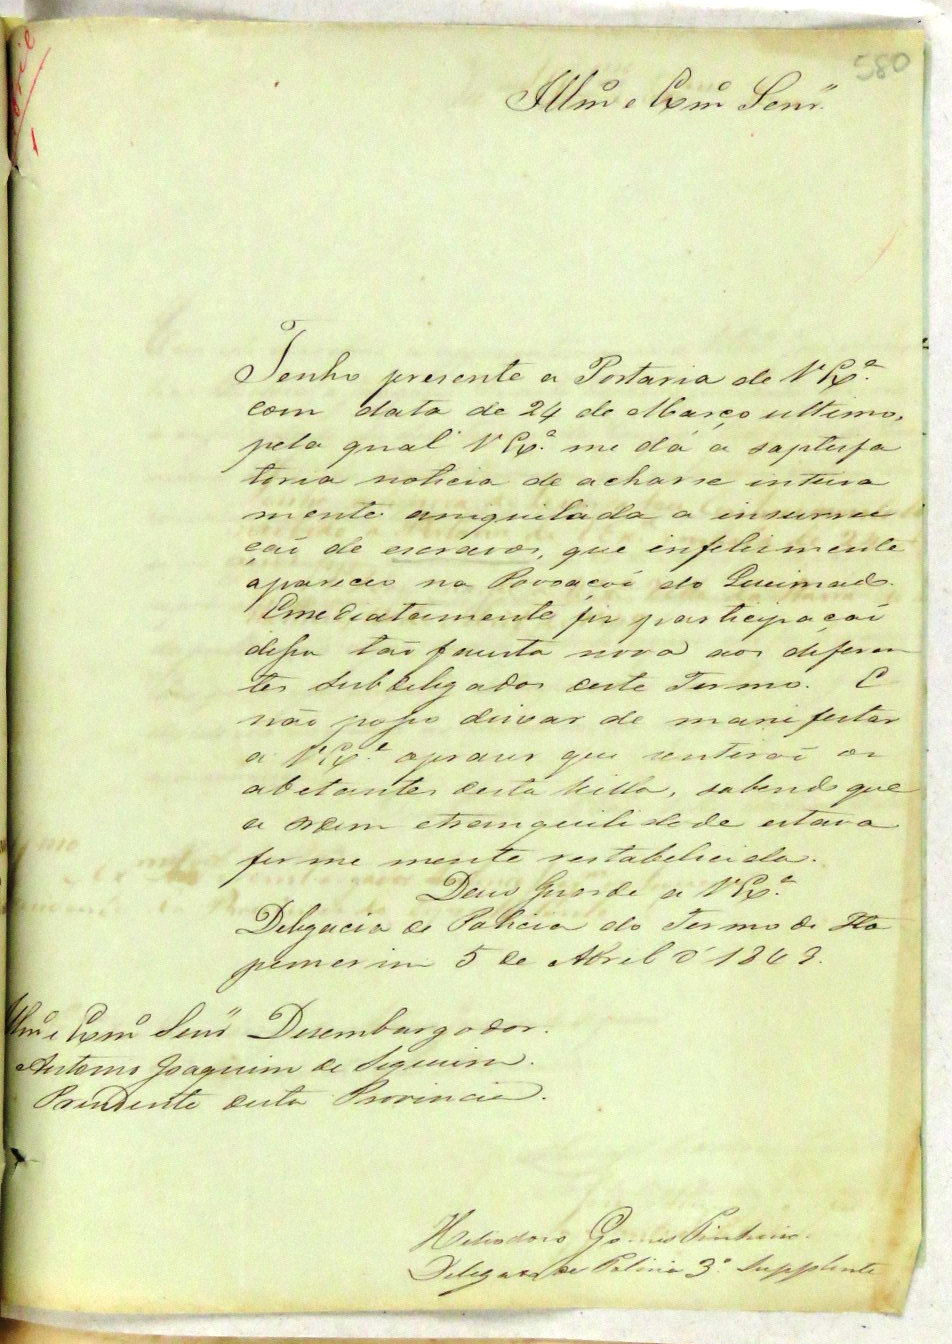 580
Illmº e Exmº Senr.
Tenho presente a Portaria de V Exª.
com data de 24 de Março ultimo,
pela qual V Exª. me dá a saptisfa
toria noticia de acharse inteira
mente aniquilada a insurrei
çaõ de escravos, que infelismente
apareceo na Povoaçaõ do Queimado.
Emediatamente fis participaçaõ
dessa taõ fausta nova aos diferen
tes Subdelegados deste Termo. E
não posso deixar de manifestar
a V Exª. aprazer que sentiraõ os
abetantes desta Villa, sabendo que
a ordem etranquilidade estava
firmemente restabelecida.
Deus Guarde a V Exª
Delegacia de Policia do Termo de Ita
pemerim 5 de Abril d' 1849.
Illmº e Exmº Senr Desembargador.
Antonio Joaquim de Sequeira.
Presidente desta Provincia.
Heliodoro Gomes Pinheiro.
Delegado de Policia 3º Supplente